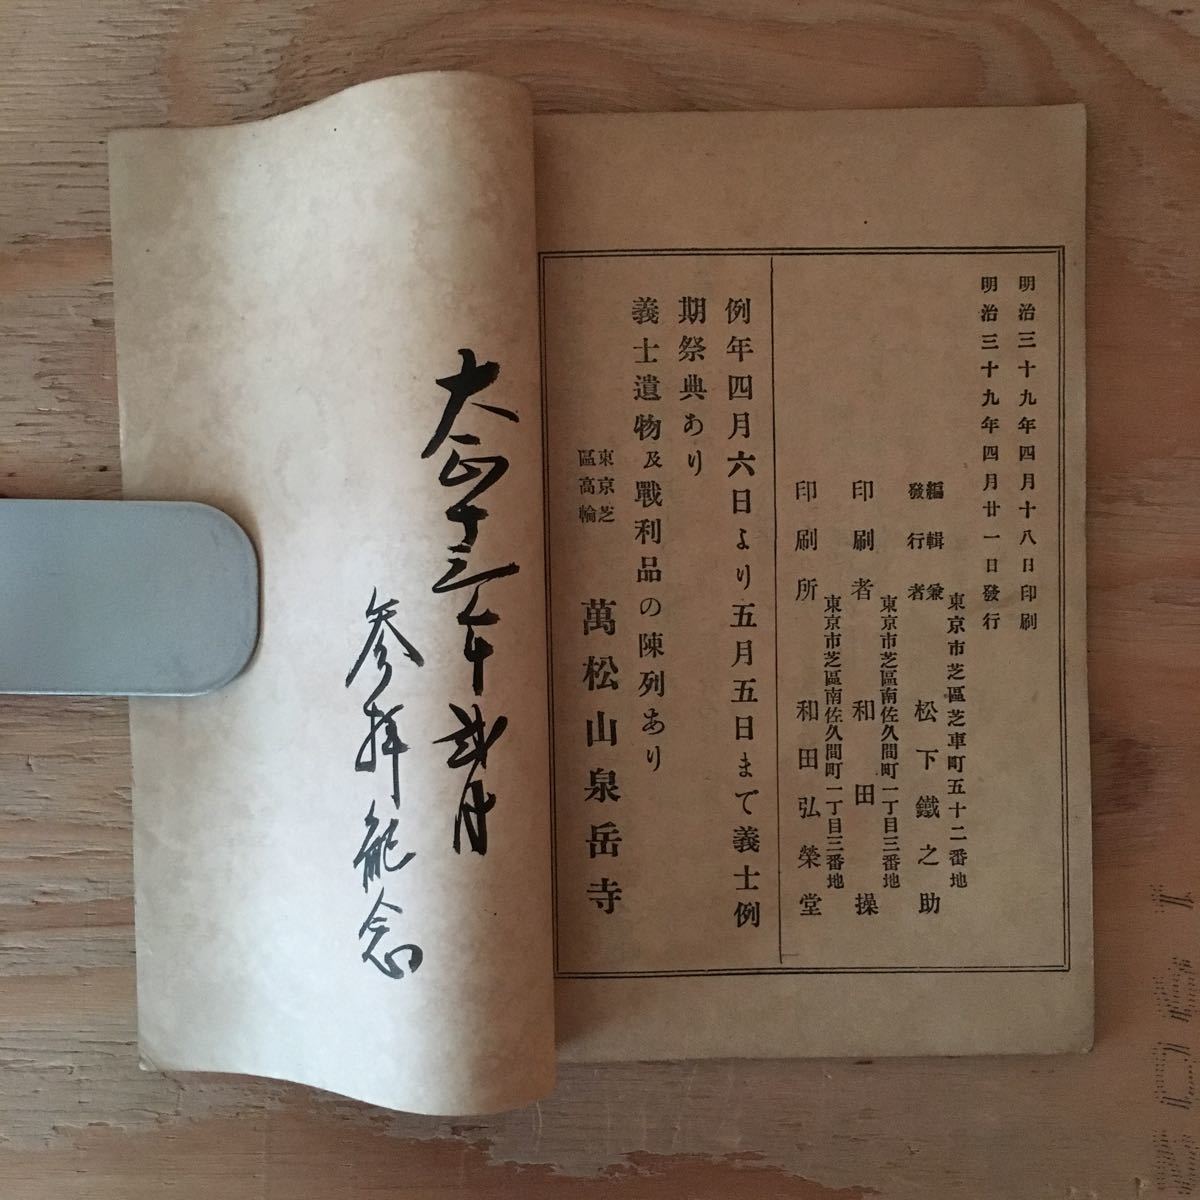 明治三十九年四月十八日印刷
明治三十九年四月廿一日發行
東京市芝區芝車町五十二番地
編輯兼
發行者 松下鐵之助
東京市芝區南佐久間町一丁目三番地
印刷者 和田操
東京市芝區南佐久間町一丁目三番地
印刷所 和田弘榮堂
例年四月六日より五月五日まで義士例
期祭典あり
義士遺物及戰利品の陳列あり
東京芝
區高輪
萬松山泉岳寺
大正十三年弐月
参拝紀念